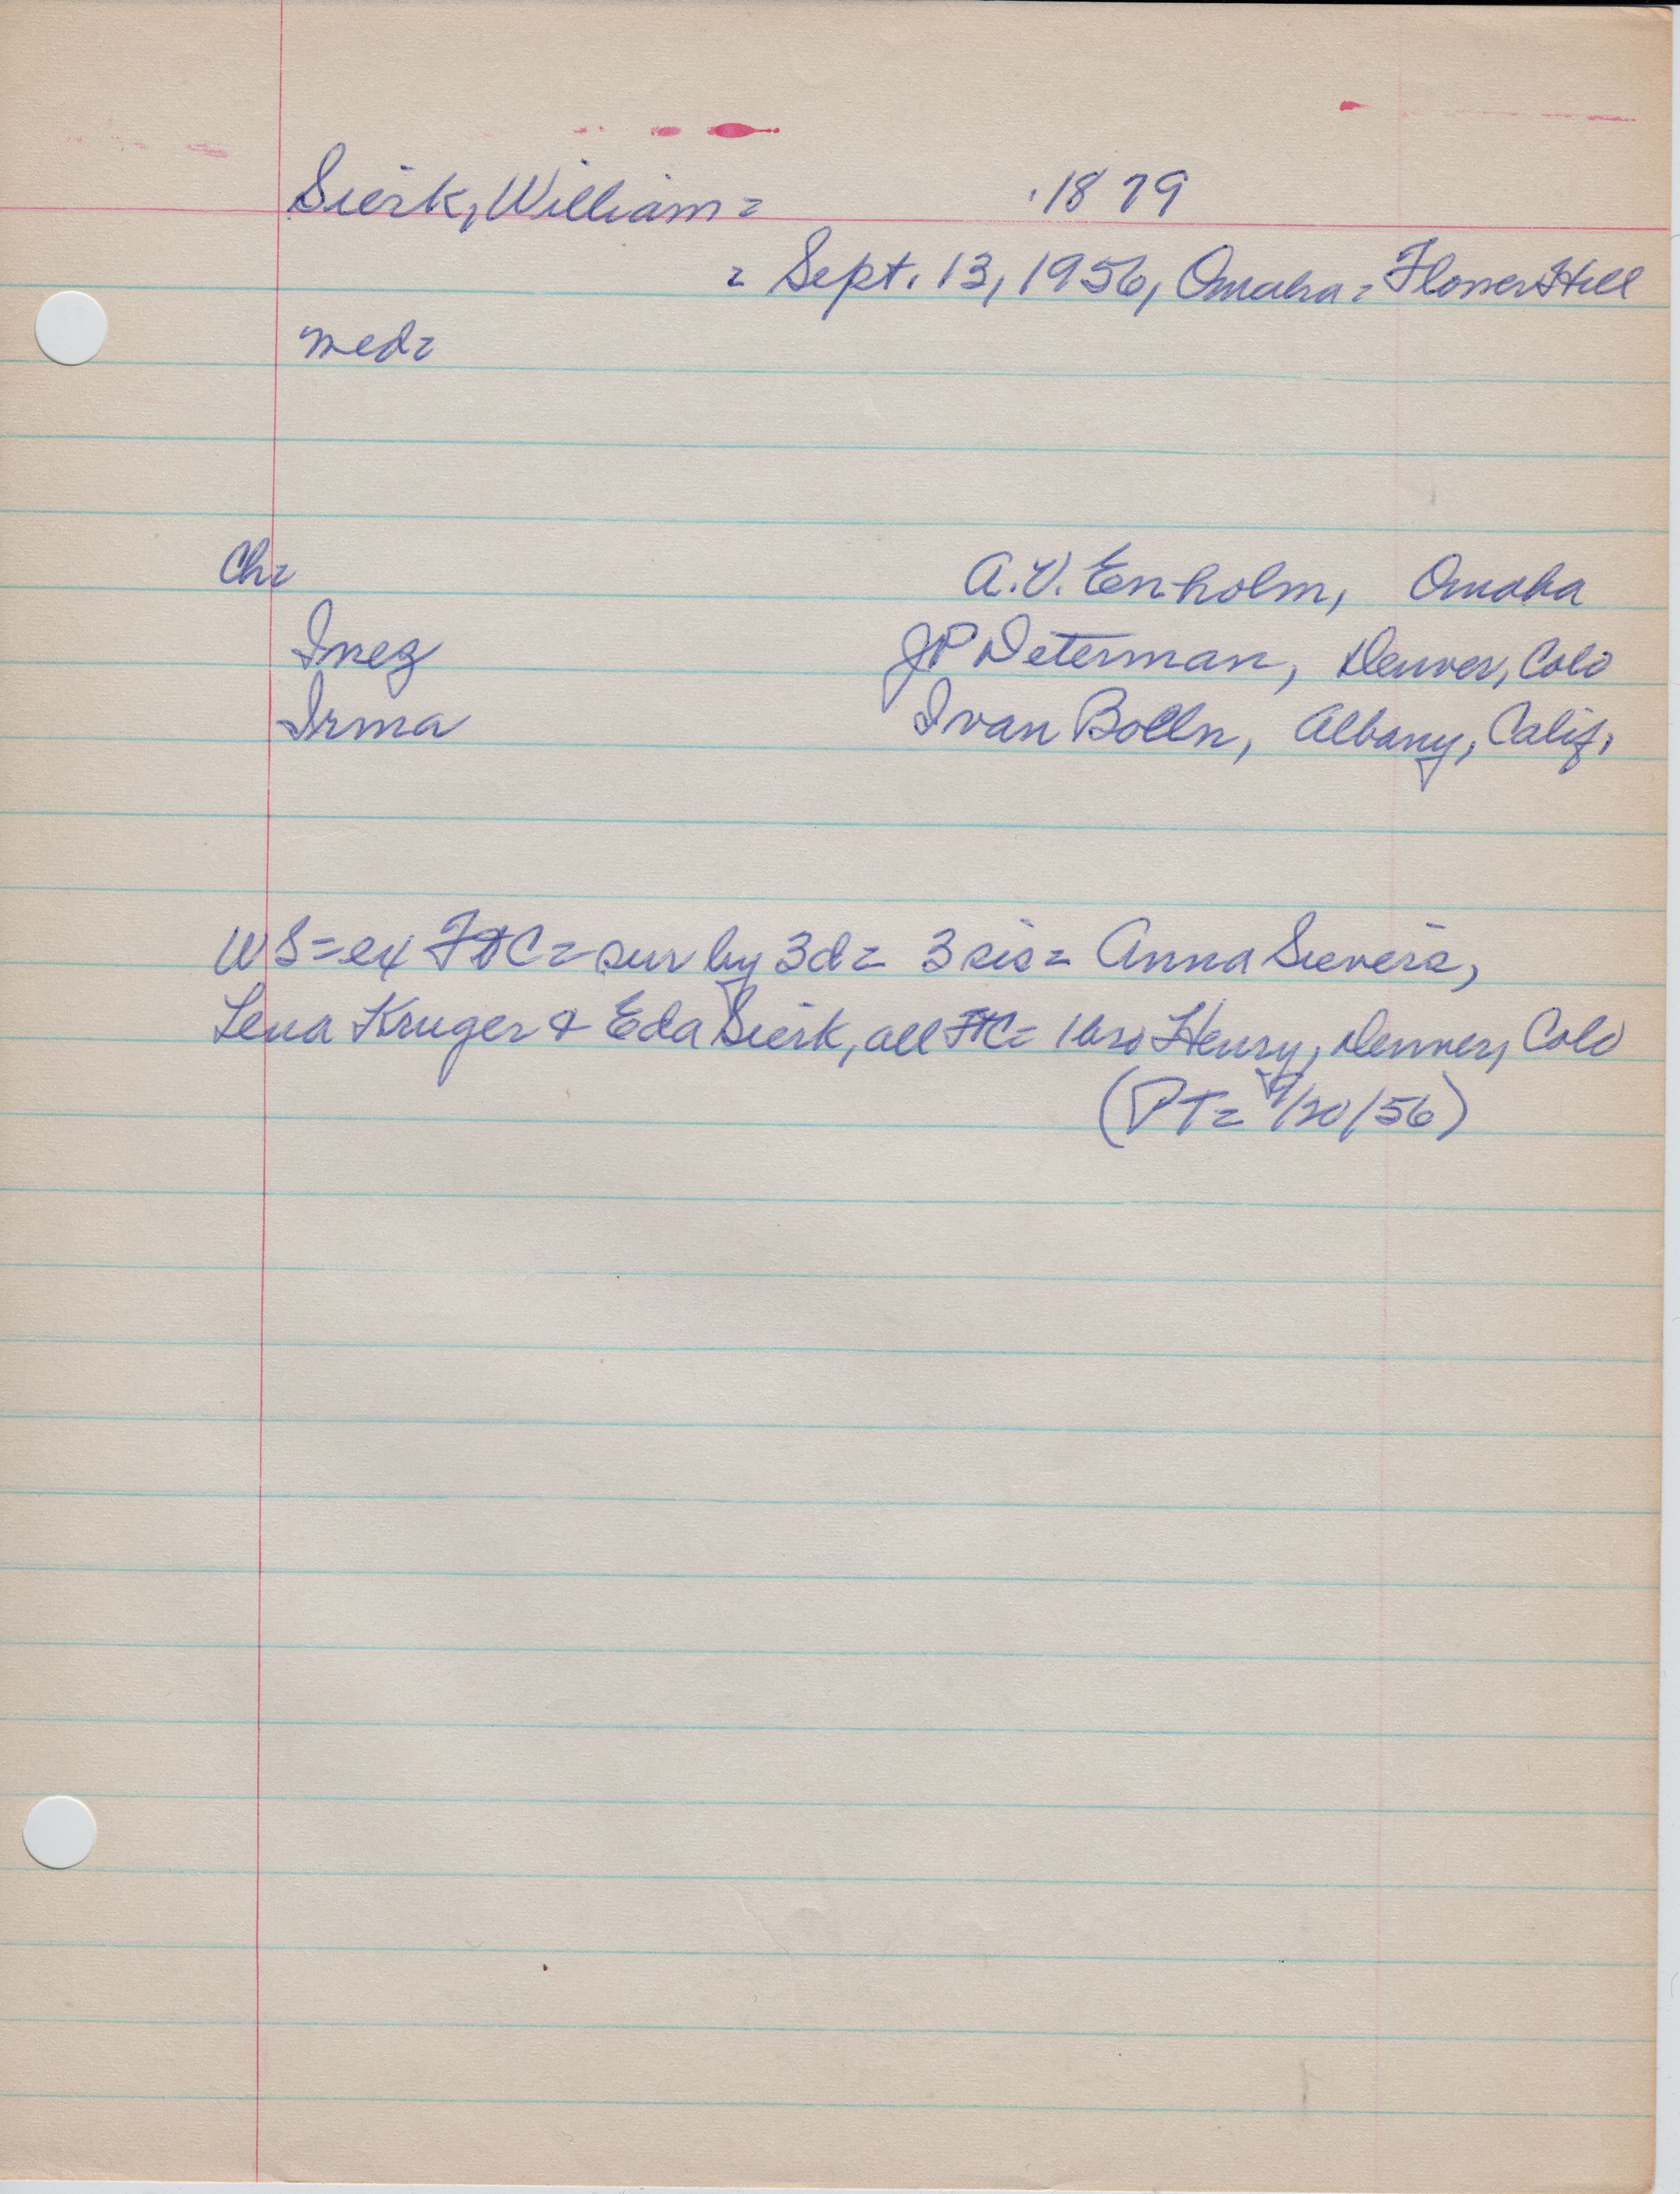 Sierk, William = 1879
= Sept. 13, 1956, Omaha = Flower Hill
med=
Ch=
A.V. Enholm, Omaha
Inez JP Determan, Denver, Colo
Irma Ivan Bolln, Albany, Calif.
WS=ex FtC= sur by 3d= 3 sis= Anna Sievers,
Lena Kruger & Eda Sierk, all FtC= 1 bro Henry, Denver, Colo
(PT= 9/20/56)